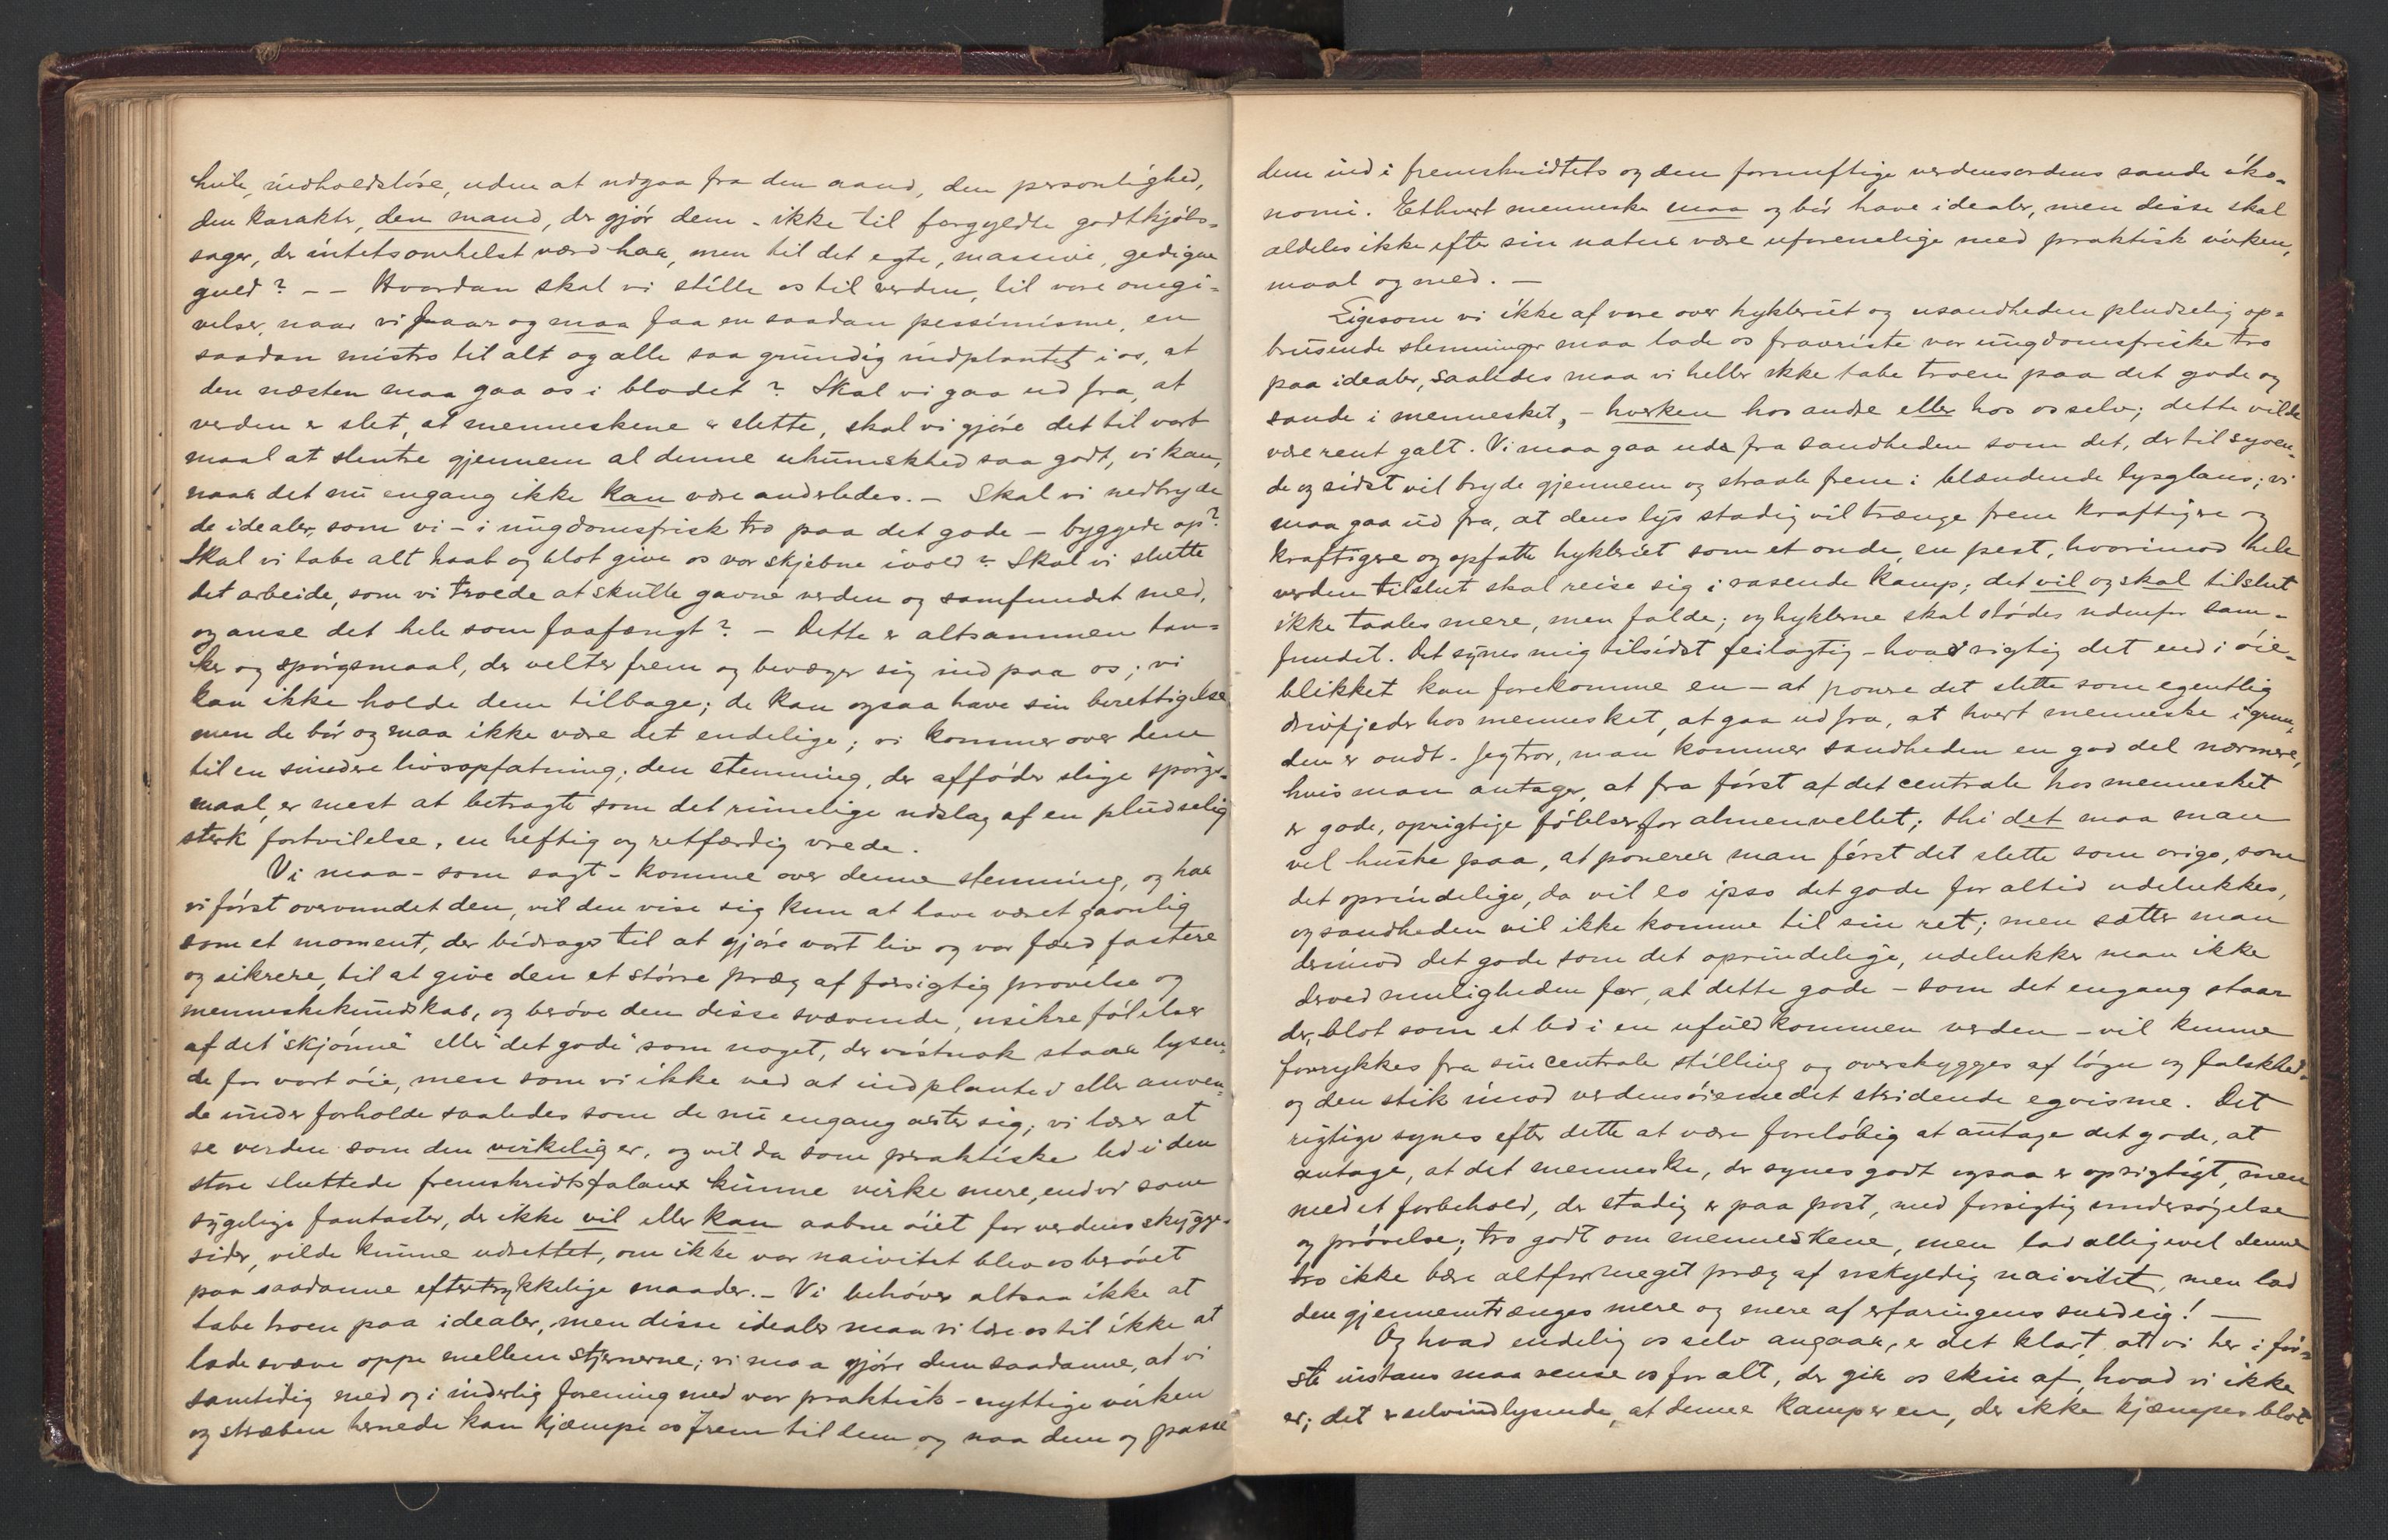 hule, indholdsløse, uden at udgaa fra den aand, den personlighed,
den karakter, den mand, der gjør dem - ikke til forgyldte godtkjøbs-
sager, der intetsomhelst værd har, men til det egte, massive, gedigne
guld? -- Hvordan skal vi stille os til verden, til vore omgi-
velser, naar vi faar og maa faa en saadan pessimisme, en
saadan mistro til alt og alle saa grundig indplantet i os, at
den næsten maa gaa os i blodet? Skal vi gaa ud fra, at
verden er slet, at menneskene er slette, skal vi gjøre det til vort
maal at slentre gjennem al denne uhumskhed saa godt, vi kan,
naar det nu engang ikke kan være anderledes. - Skal vi nedbryde
de idealer, som vi - i ungdomsfrisk tro paa det gode - byggede op?
Skal vi tabe alt haab og blot give os vor skjebne ivold? Skal vi slutte
det arbeide, som vi troede at skulle gavne verden og samfundet med,
og anse det hele som faafængt? - Dette er altsammen tan-
ker og spørgsmaal, der velter frem og bevæger sig ind paa os; vi
kan ikke holde dem tilbage; de kan ogsaa have sin berettigelse
men de bør og maa ikke være det endelige; vi kommer over dem
til en sundere livsopfatning; den stemning, der afføder slige spørgs-
maal, er mest at betragte som det rimelige udslag af en pludselig
sterk fortvilelse, en heftig og retfærdig vrede.
Vi maa - som sagt - komme over denne stemning, og har
vi først overvundet den, vil den vise sig kun at have været gavnlig
som et moment, der bidrager til at gjøre vort liv og vor færd fastere
og sikrere, til at give den et større præg af forsigtig prøvelse og
menneskekundskab, og berøve den disse svævende, usikre følelser
af det "skjønne" eller "det gode" som noget, der vistnok staar lysen-
de for vort øie, men som vi ikke ved at indplante i eller anven-
de under forholde saaledes som de nu engang arter sig; vi lærer at
se verden som den virkelig er, og vil da som praktiske led i den
store sluttede fremskridtsfalanx kunne virke mere, end vi som
sygelige fantaster, der ikke vil eller kan aabne øiet for verdens skygge-
sider, vilde kunne udrettet, om ikke vor naivitet blev os berøvet
paa saadanne eftertrykkelige maader. - Vi behøver altsaa ikke at
tabe troen paa idealer, men disse idealer maa vi lære os til ikke at
lade svæve oppe mellem stjernerne; vi maa gjøre dem saadanne, at vi
samtidig med og i inderlig forening med vor praktisk-nyttige virken
og stræben hernede kan kjæmpe os frem til dem og naa dem og passe
dem ind i fremskridtets og den fornuftige verdensordens sande øko-
nomi. Ethvert menneske maa og bør have idealer, men disse skal
aldeles ikke efter sin natur være uforenelige med praktisk virken,
maal og med. -
Ligesom vi ikke af vore over hykleriet og usandheden pludselig op-
brusende stemninger maa lade os fravriste vor ungdomsfriske tro
paa idealer, saaledes maa vi heller ikke tabe troen paa det gode og
sande i mennesket, - hverken hos andre eller hos os selv; dette vilde
være rent galt. Vi maa gaa ud fra sandheden som det, der til syven-
de og sidst vil bryde gjennem og straale frem i blændende lysglans; vi
maa gaa ud fra, at dens lys stadig vil trænge frem kraftigere og
kraftigere og opfatte hykleriet som et onde, en pest, hvorimod hele
verden tilslut skal reise sig i rasende kamp; det vil og skal tilslut
ikke taales mere, men falde; og hyklerne skal stødes udenfor sam-
fundet. Det synes mig tilsidst feilagtig - hvad rigtig det end i øie-
blikket kan forekomme en - at ponere det slette som egentlig
drivfjeder hos mennesket, at gaa ud fra, at hvert menneske i grun-
den er ondt. Jeg tror, man kommer sandheden en god del nærmere,
hvis man antager, at fra først af det centrale hos mennesket
er gode, oprigtige følelser for almenvellet; thi det maa man
vel huske paa, at ponerer man først det slette som origo, som
det oprindelige, da vil eo ipso det gode for altid udelukkes,
og sandheden vil ikke komme til sin ret; men sætter man
derimod det gode som det oprindelige, udelukker man ikke
derved muligheden for, at dette gode - som det engang staar
der, blot som et led i en ufuldkommen verden - vil kunne
forrykkes fra sin centrale stilling og overskygges af løgn og falskhed
og den stik imod verdensøiemedet stridende egoisme. Det
rigtige synes efter dette at være foreløbig at antage det gode, at
antage, at det menneske, der synes godt ogsaa er oprigtigt, men
med et forbehold, der stadig er paa post, med forsigtig undersøgelse
og prøvelse; tro godt om menneskene, men lad alligevel denne
tro ikke bære altformeget præg af uskyldig naivitet, men lad
den gjennemtrænges mere og mere af erfaringens surdeig! -
Og hvad endelig os selv angaar, er det klart, at vi her i før-
ste instans maa rense os for alt, der gir os skin af, hvad vi ikke
er; det er selvindlysende, at denne kamp er en, der ikke kjæmpes blot